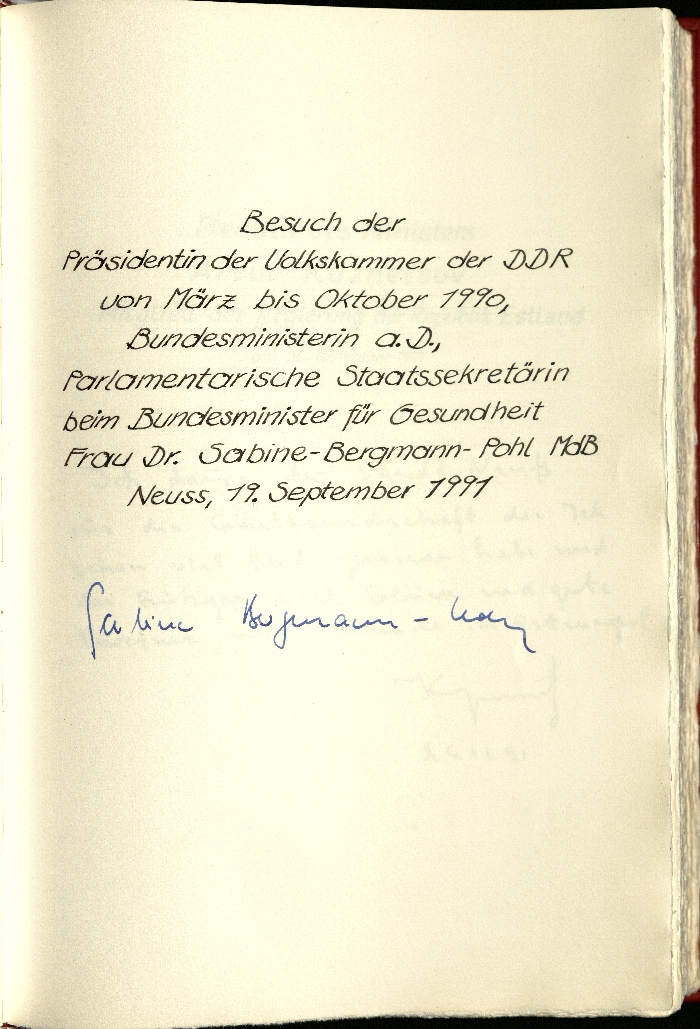 Besuch der
Präsidentin der Volkskammer der DDR
von März bis Oktober 1990,
Bundesministerin a.D.,
Parlamentarische Staatssekretärin
beim Bundesminister für Gesundheit
Frau Dr. Sabine-Bergmann-Pohl MdB
Neuss, 19. September 1991
Sabine Bergmann-Pohl